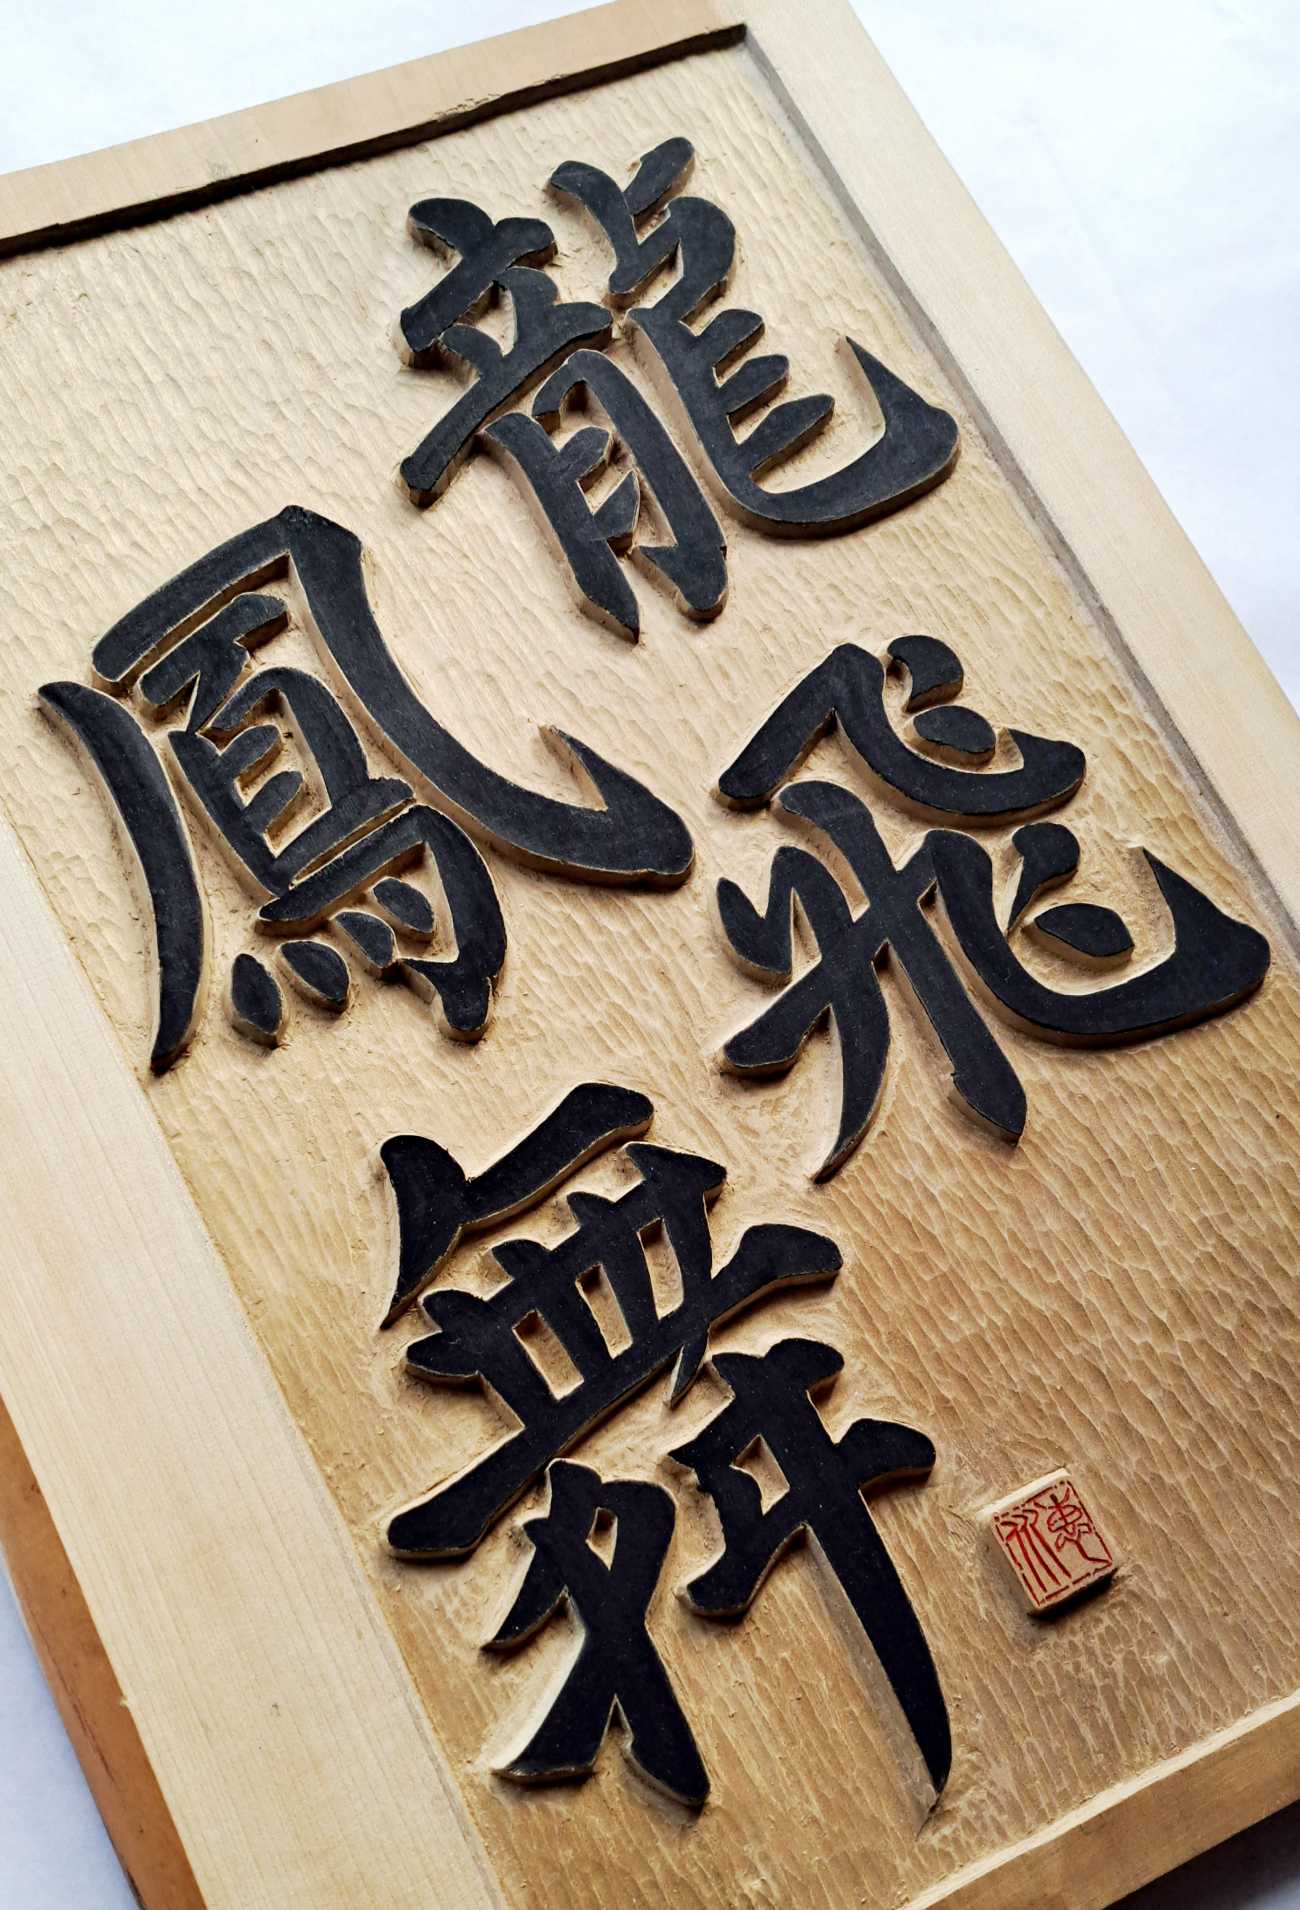 龍飛
鳳舞